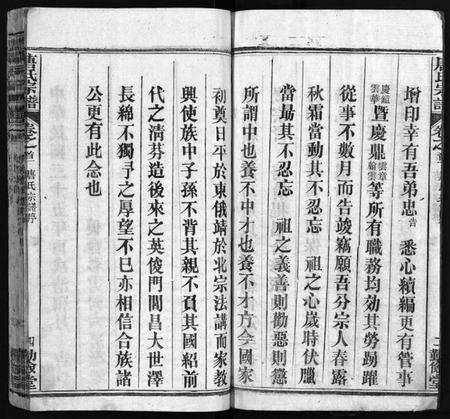 唐氏宗譜 卷之首
增印幸有吾弟忠告 悉心續編更有管事
雲華暨慶鼎雲章雲翰等所有職務均効其勞踴躍
從事不數月而告竣竊願吾分宗人春露
秋霜當動其不忍忘 祖之心歲時伏臘
當塲其不忍忘 祖之義善則勸惡則懲
所謂中也養不中才也養不才方今國家
初奠日平於東俄靖於北宗法講而家教
興使族中子孫不背其親不負其國紹前
代之清芬造後來之英俊門閭昌大世澤
長綿不獨予之厚望不已亦相信合族諸
公更有此念也
唐氏宗譜 卷之首 唐氏宗譜序 四